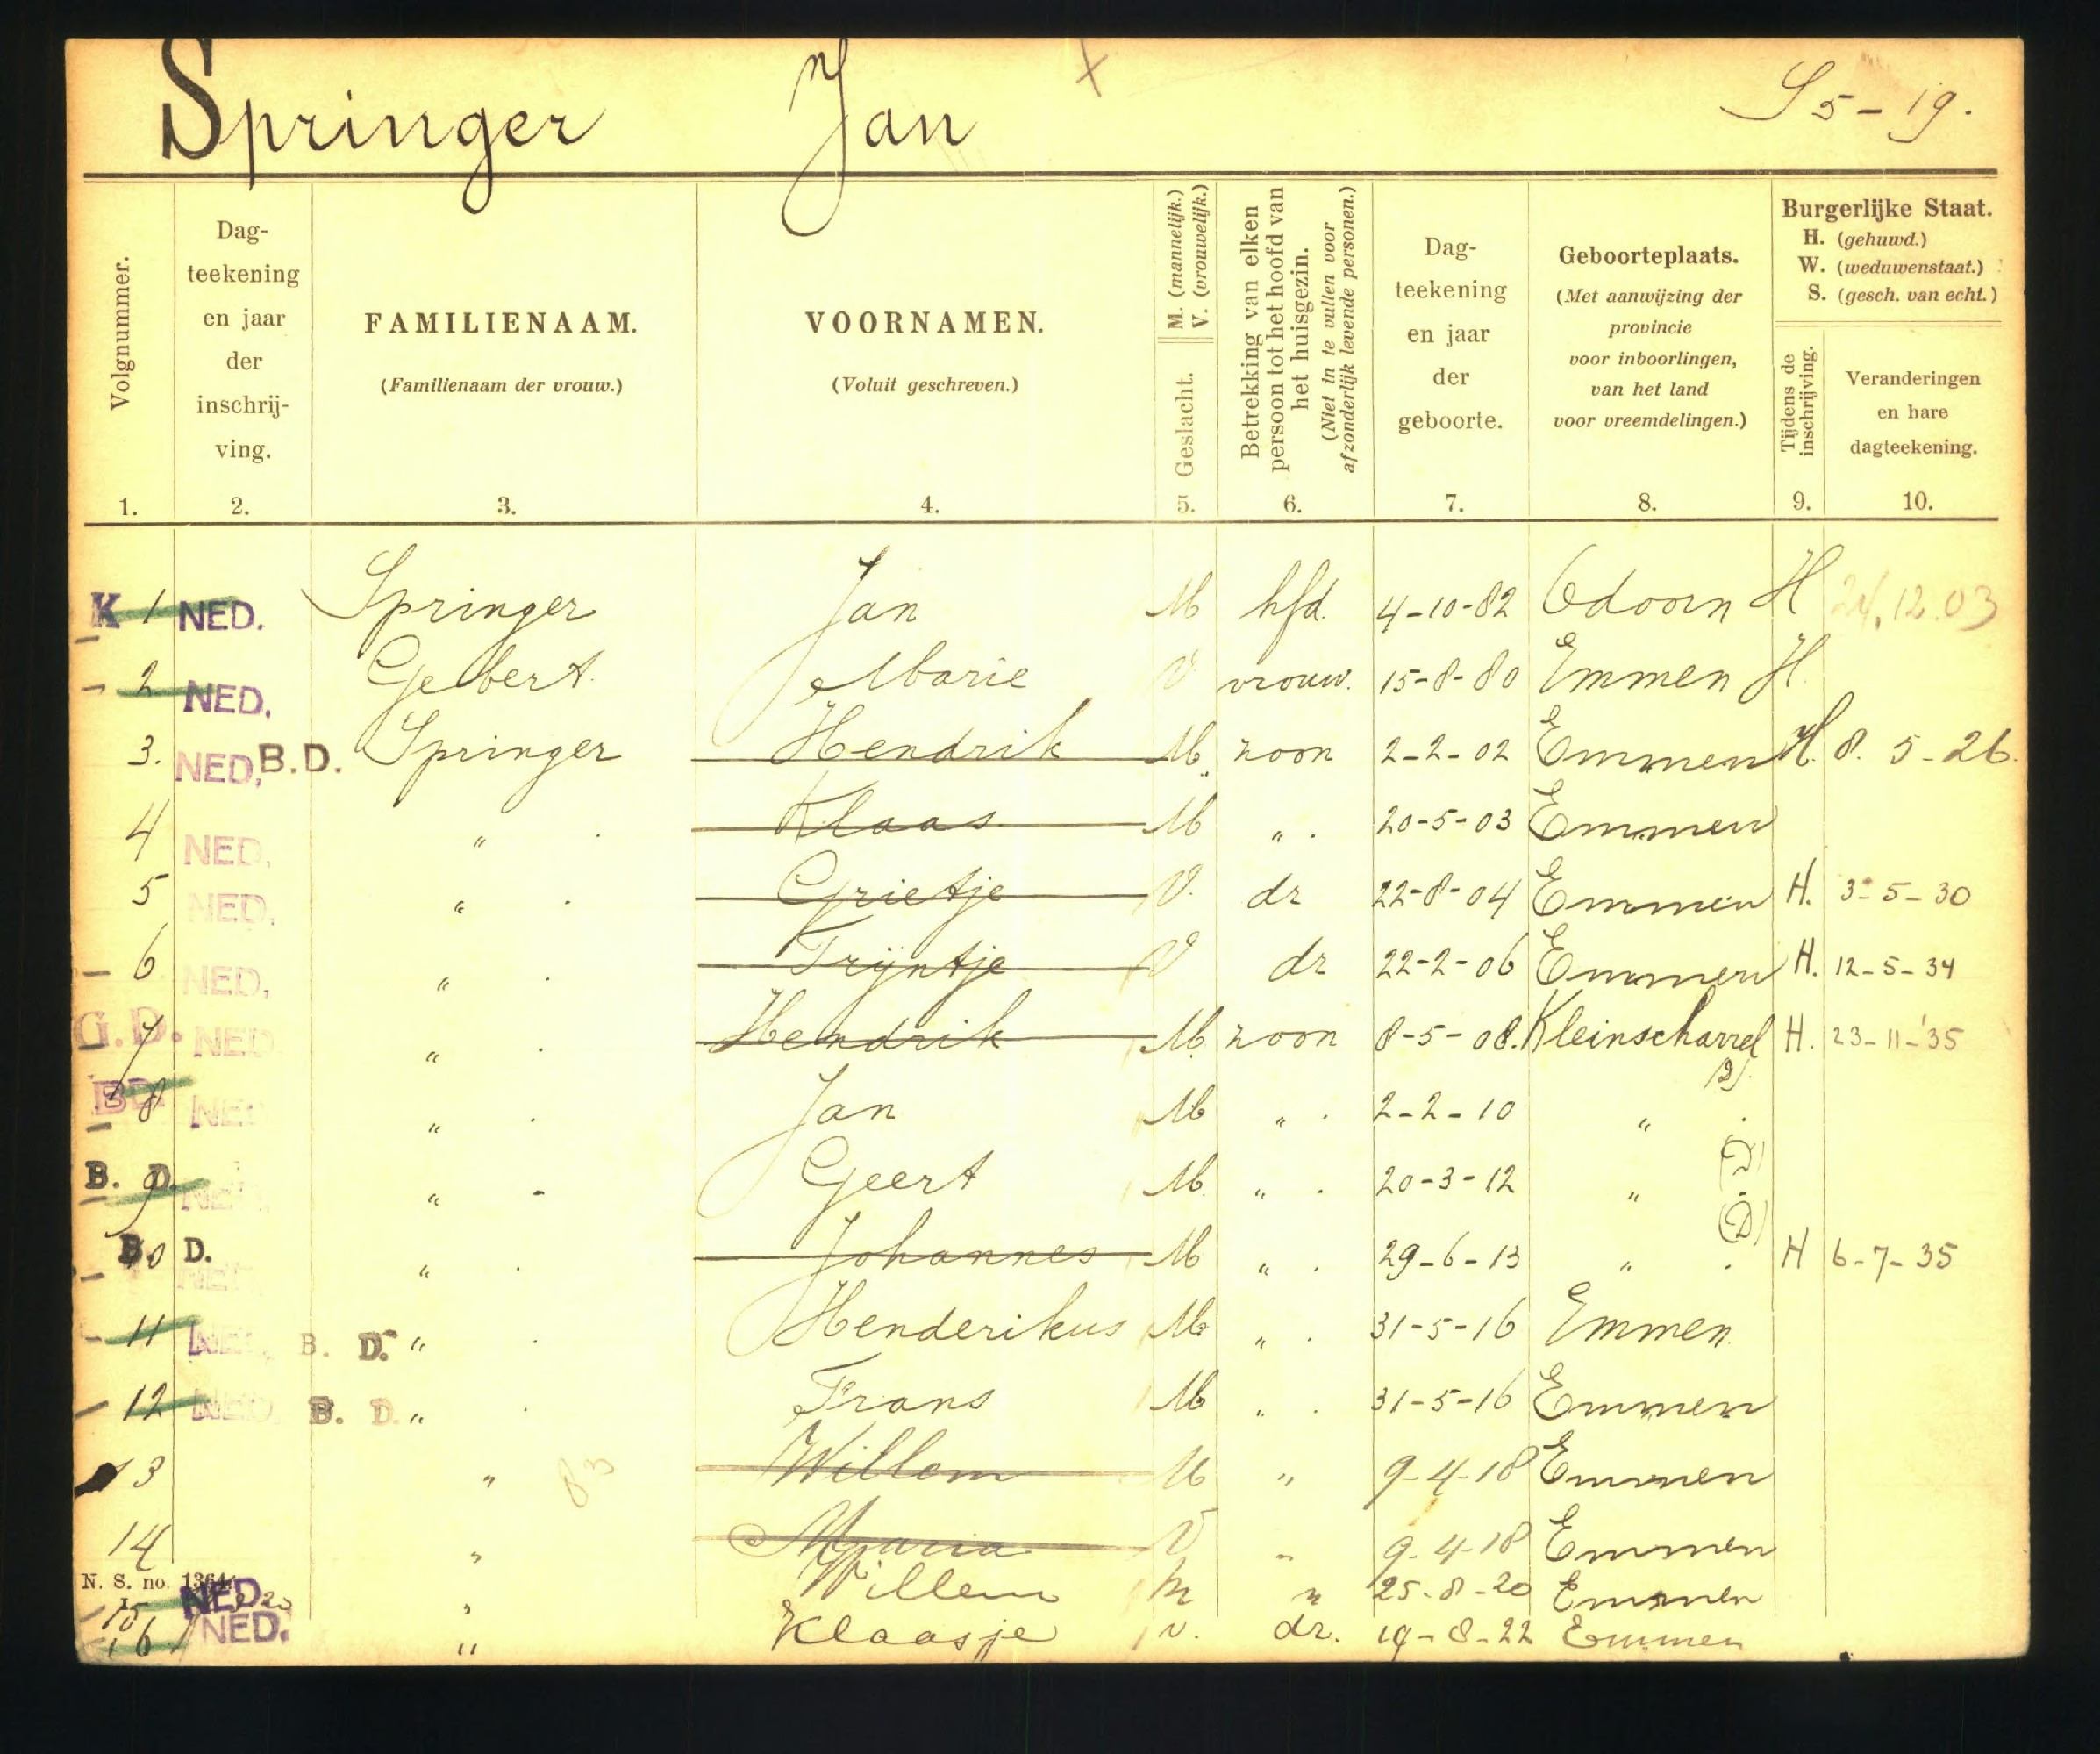 Springer Jan S 5-19.
Volgnummer.
1.
Dag-
teekening
en jaar
der
inschrij-
ving.
2.
FAMILIENAAM.
(Familienaam der vrouw.)
3.
VOORNAMEN.
(Voluit geschreven.)
4.
M. (mannelijk.)
V. (vrouwelijk.)
Geslacht.
5.
Betrekking van elken
persoon tot het hoofd van
het huisgezin.
(Niet in te vullen voor
afzonderlijk levende personen.)
6.
Dag-
teekening
en jaar
der
geboorte.
7.
Geboorteplaats.
(Met aanwijzing der
provincie
voor inboorlingen,
van het land
voor vreemdelingen.)
8.
Burgerlijke Staat.
H. (gehuwd.)
W. (weduwenstaat.)
S. (gesch. van echt.)
Tijdens de
inschrijving.
9.
Veranderingen
en hare
dagteekening.
10.
K 1 NED. Springer Jan M hfd. 4-10-82 Odoorn H 24.12.03
2 NED. Gelbert. Marie V vrouw. 15-8-80 Emmen H.
3. NED. B.D. Springer Hendrik M. zoon 2-2-02 Emmen H. 8. 5-26.
4 NED. " Klaas M ". 20-5-03 Emmen
5 NED. " Grietje V. dr 22-8-04 Emmen H. 3-5-30
6 NED. " Trijntje V dr 22-2-06 Emmen H. 12-5-34
G.D. 7 NED " Hendrik M. zoon 8-5-08. Kleinscharrel (D) H. 23-11-'35
BD. 8 NED " Jan M ". 2-2-10 " (D)
B. D. 9 NED " Geert M. ". 20-3-12 " (D)
B. D. 10 NED " Johannes M ". 29-6-13 " H 6-7-35
11 NED. B. D. " Henderikus M. ". 31-5-16 Emmen
12 NED. B. D. " Frans M ". 31-5-16 Emmen
13 " 83 Willem M " 9-4-18 Emmen
14 " Maria V " 9-4-18 Emmen
N. S. no. 1364
15 NED. 20 " Willem M " 25-8-20 Emmen
16 NED. " Klaasje V. dr. 19-8-22 Emmen